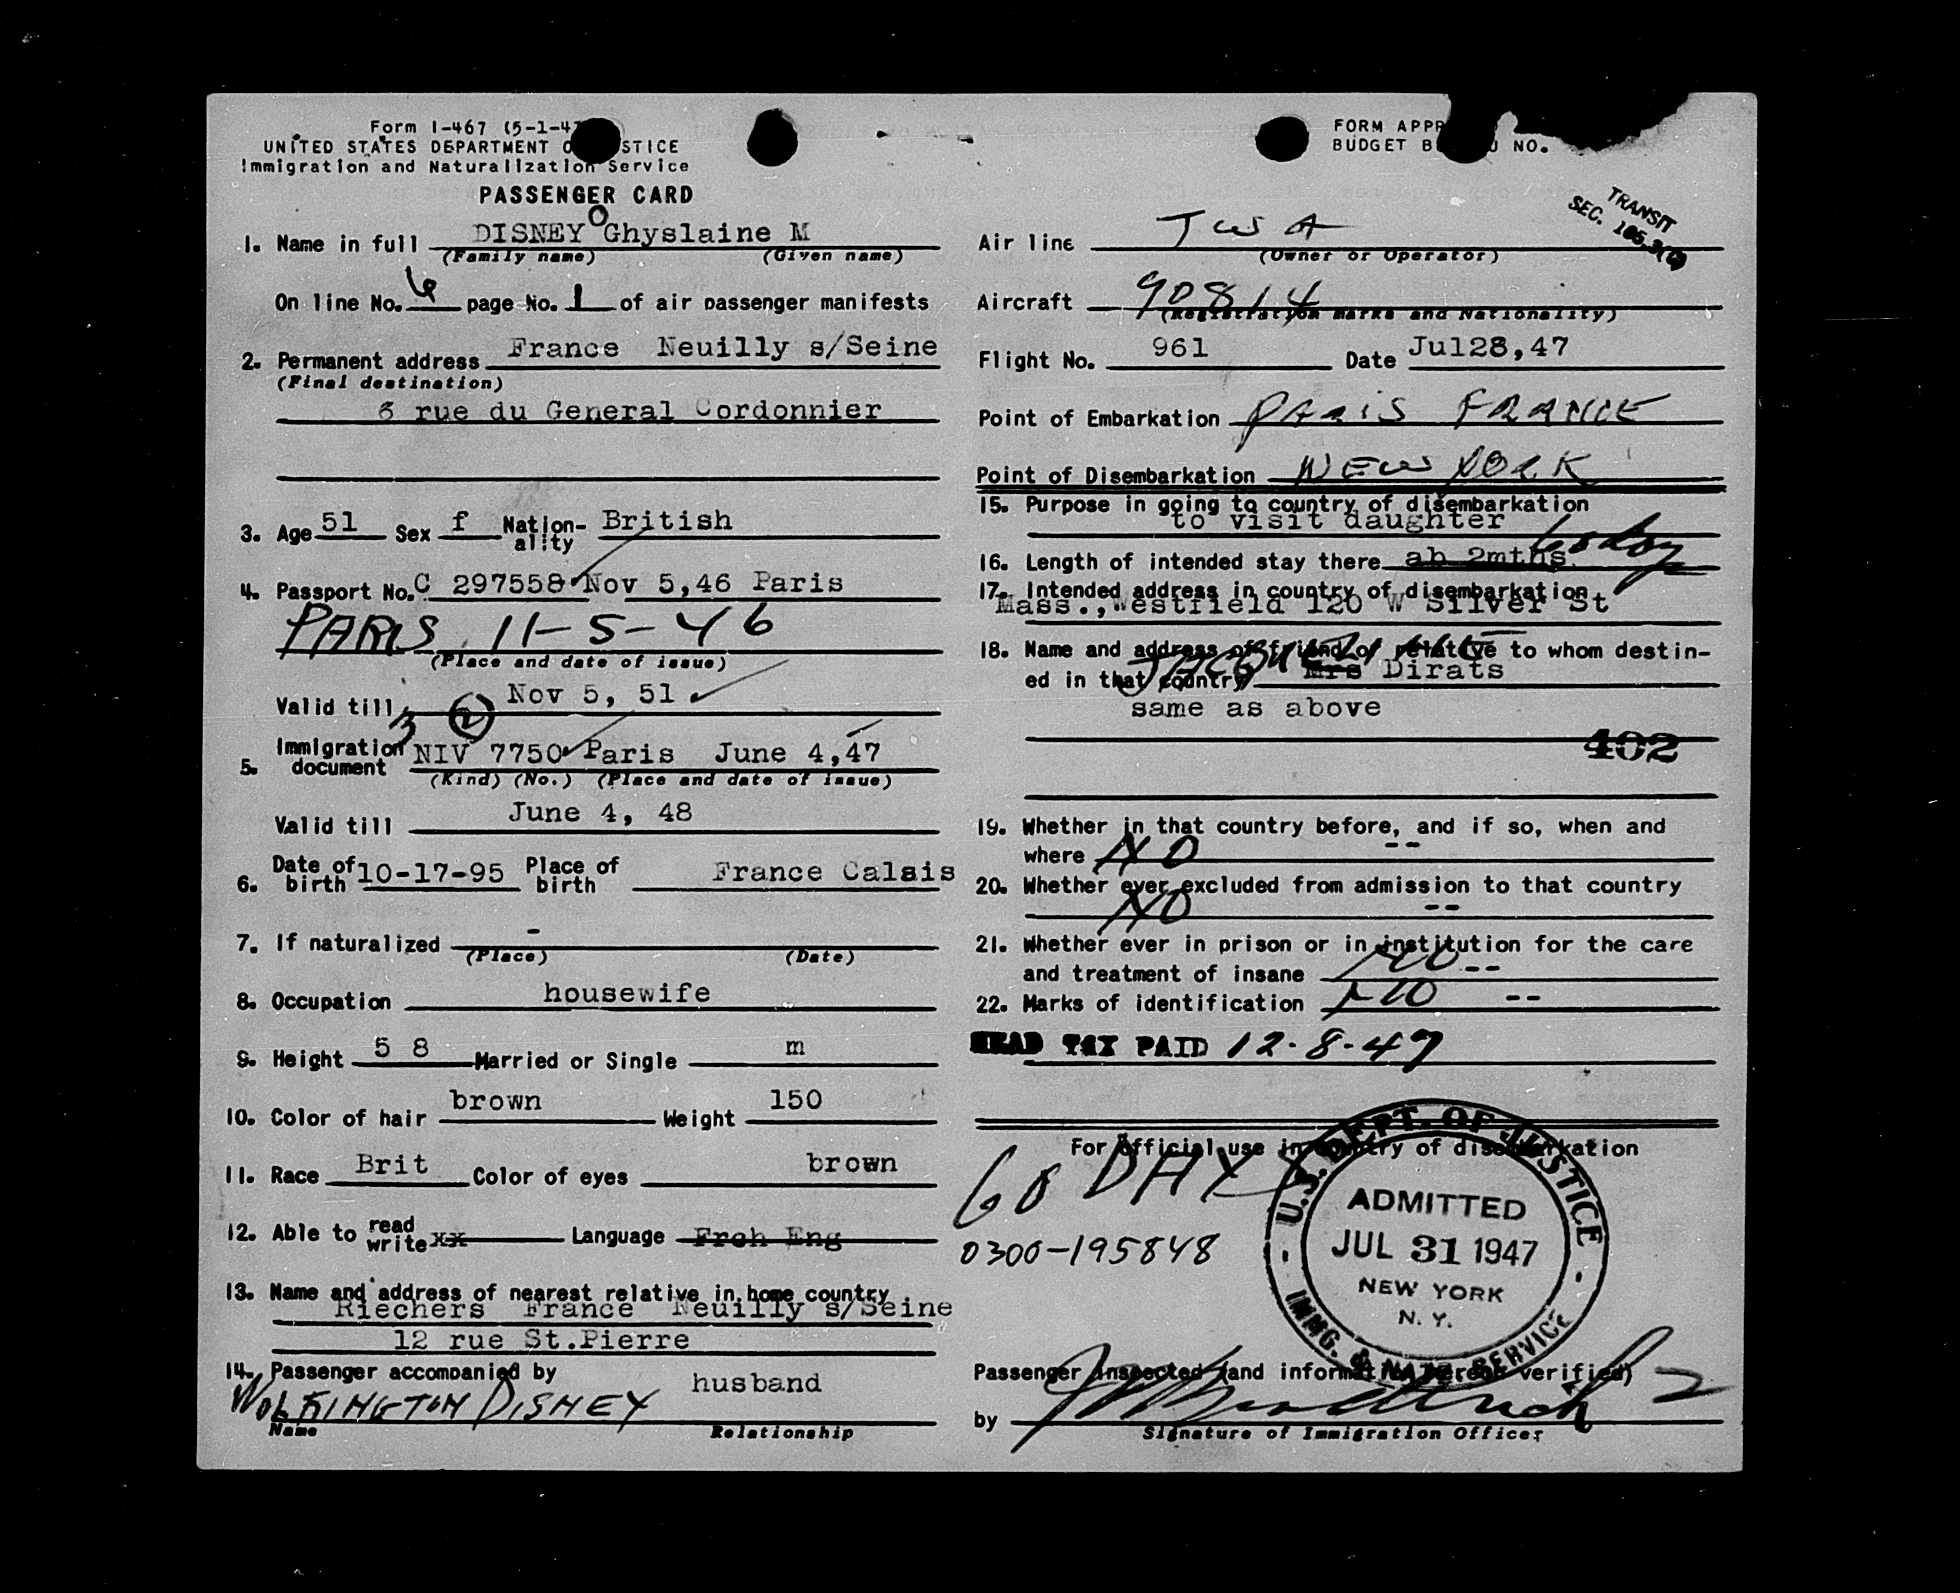 Form I-467 (5-1-4
UNITED STATES DEPARTMENT O STICE
Immigration and Naturalization Service
PASSENGER CARD
1. Name in full DISNEY Ghyslaine M
(Family name) (Given name)
On line No. 6 page No. 1 of air passenger manifests
2. Permanent address France Neuilly s/Seine
(Final destination)
6 rue du General Cordonnier
3. Age 51 Sex f Nation-ality British
4. Passport No. C 297558 Nov 5,46 Paris
PARIS 11-5-46
(Place and date of issue)
Valid till Nov 5, 51
5. Immigration document NIV 7750 Paris June 4,47
(Kind) (No.) (Place and date of issue)
Valid till June 4, 48
6. Date of birth 10-17-95 Place of birth France Calais
7. If naturalized -
(Place) (Date)
8. Occupation housewife
9. Height 5 8 Married or Single m
10. Color of hair brown Weight 150
11. Race Brit Color of eyes brown
12. Able to read write xx Language Frch Eng
13. Name and address of nearest relative in home country
Riechers France Neuilly s/Seine
12 rue St.Pierre
14. Passenger accompanied by
WOLKINGTON DISNEY husband
Name Relationship
FORM APPR
BUDGET B U NO.
TRANSIT
SEC.
Air line TWA
(Owner or Operator)
Aircraft 90814
(Registration marks and Nationality)
Flight No. 961 Date Jul28,47
Point of Embarkation PARIS FRANCE
Point of Disembarkation NEW YORK
15. Purpose in going to country of disembarkation
to visit daughter
16. Length of intended stay there ab 2mths
17. Intended address in country of disembarkation
Mass.,Westfield 120 W Silver St
18. Name and address of friend or relative to whom destin-
ed in that country JACQUELINE Mrs Dirats
same as above
402
19. Whether in that country before, and if so, when and
where NO --
20. Whether ever excluded from admission to that country
NO --
21. Whether ever in prison or in institution for the care
and treatment of insane NO --
22. Marks of identification NO --
HEAD TAX PAID 12-8-47
For official use in country of disembarkation
60 DAYS
0300-195848
U.S. DEPT. OF JUSTICE
ADMITTED
JUL 31 1947
NEW YORK
N. Y.
IMMG. & NATZ. SERVICE
Passenger inspected (and information hereon verified)
by
Signature of Immigration Officer